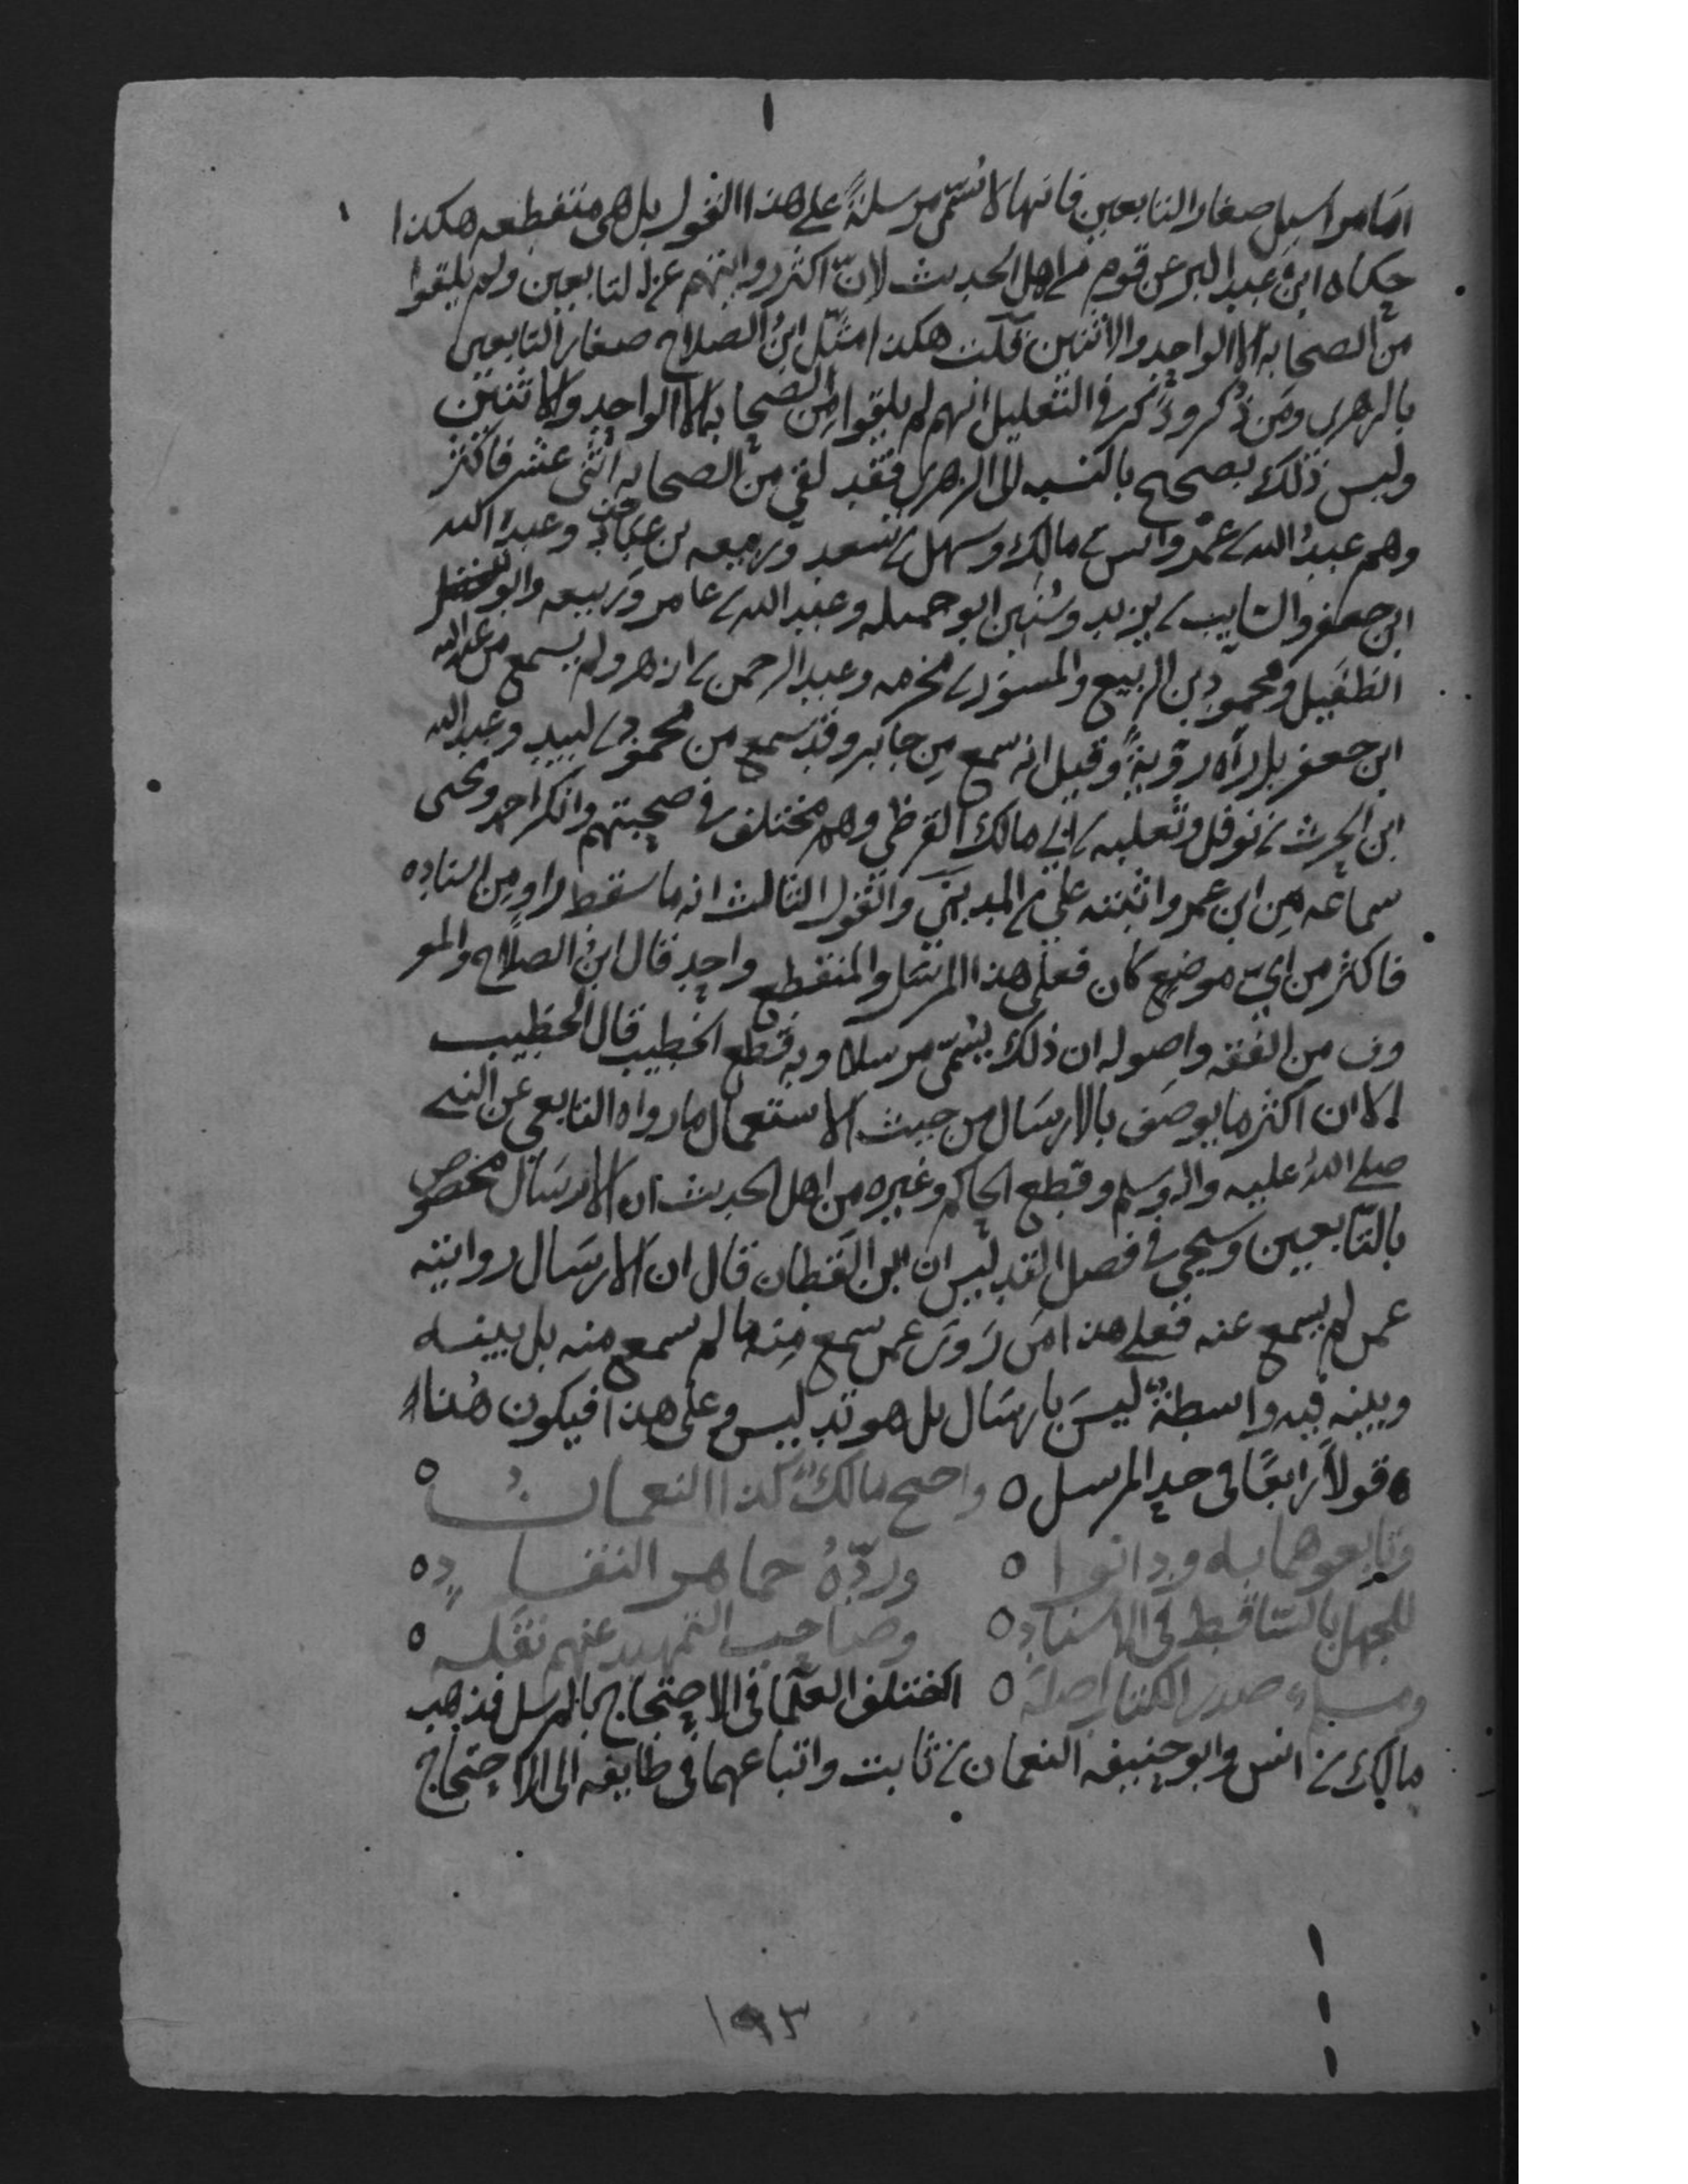 اما مراسيل صغار التابعين فانها لا تسمّى مرسلةً على هذا القول بل هى منقطعه هكذا
حكاه ابن عبد البر عن قوم من اهل الحديث لانّ اكثر روايتهم عن التابعين ولم يلقوا
من الصحابه الا الواحد والاثنين قلت هكذا مثّل ابنُ الصلاح صغار التابعين
بالزهرى ومَن ذُكر وذَكر فى التعليل انهم لم يلقوا مِن الصحابه الا الواحد والاثنين
وليس ذلك بصحيح بالنسبه الى الزهرى فقد لقى مِن الصحابه اثنى عشر فاكثر
وهم عبدُ الله بن عمر وانس بن مالك وسهل بن سعد وربيعه بن عباد وعبد الله
ابن جعفر والسايب بن يزيد وسُنَين ابو جميله وعبد الله بن عامر وربيعه وابو
الطفَيل ومحمود بن الربيع والمسوَر بن مخرمه وعبد الرحمن بن ازهر ولم يسمع من عبد الله
ابن جعفر بل رآه رؤيةً وقيل انه سمع مِن جابر وقد سمع من محمود بن لبيد وعبد الله
ابن الحرث بن نوفل وثعلبه بن ابى مالك القرظى وهم مختلف فى صحبتهم وانكر احمد ويحيى
سماعه مِن ابن عمر واثبته على بن المدينى والقول الثالث انه ما سقط راوٍ مِن اسناده
فاكثر من اىّ موضع كان فعلى هذا المرسَل والمنقطع واحد قال ابنُ الصلاح والمعر
وف من الفقه واصوله ان ذلك يسمّى مرسلا وبه قطع الخطيب قال الخطيب
الا ان اكثر ما يوصَف بالارسَال من حيث الاستعمال ما رواه التابعى عن النبى
صلى اللهُ عليه واله وسلم وقطع الحاكم وغيره من اهل الحديث ان الارسَال مخصوص
بالتّابعين وسيجى فى فصل التدليس ان ابن القطان قال ان الارسَال روايته
عمن لم يسمع عنه فعلى هذا مَن رَوىَ عمن سمع مِنه ما لم يسمع منه بل بينه
وبينه فيه واسطةٌ ليسَ بارسَال بل هو تدليس وعلى هذا فيكون هُنا
قولاً رابعًا فى حد المرسل ٥ واحتج مالكٌ كذا النعمانُ ٥
وتابعوهما به ودانوا ٥ وردّهُ جماهر النقادِ ٥
للجهل بالسّاقط فى الاسنادِ ٥ وصاحب التمهيد عنهم نقله ٥
ومسلم صدر الكتاب اصّله ٥ اختلف العلما فى الاحتجاج بالمرسل فذهب
مالك بن انس وابو حنيفه النعمان بن ثابت واتباعهما فى طايفه الى الاحتجاج
١٩٣